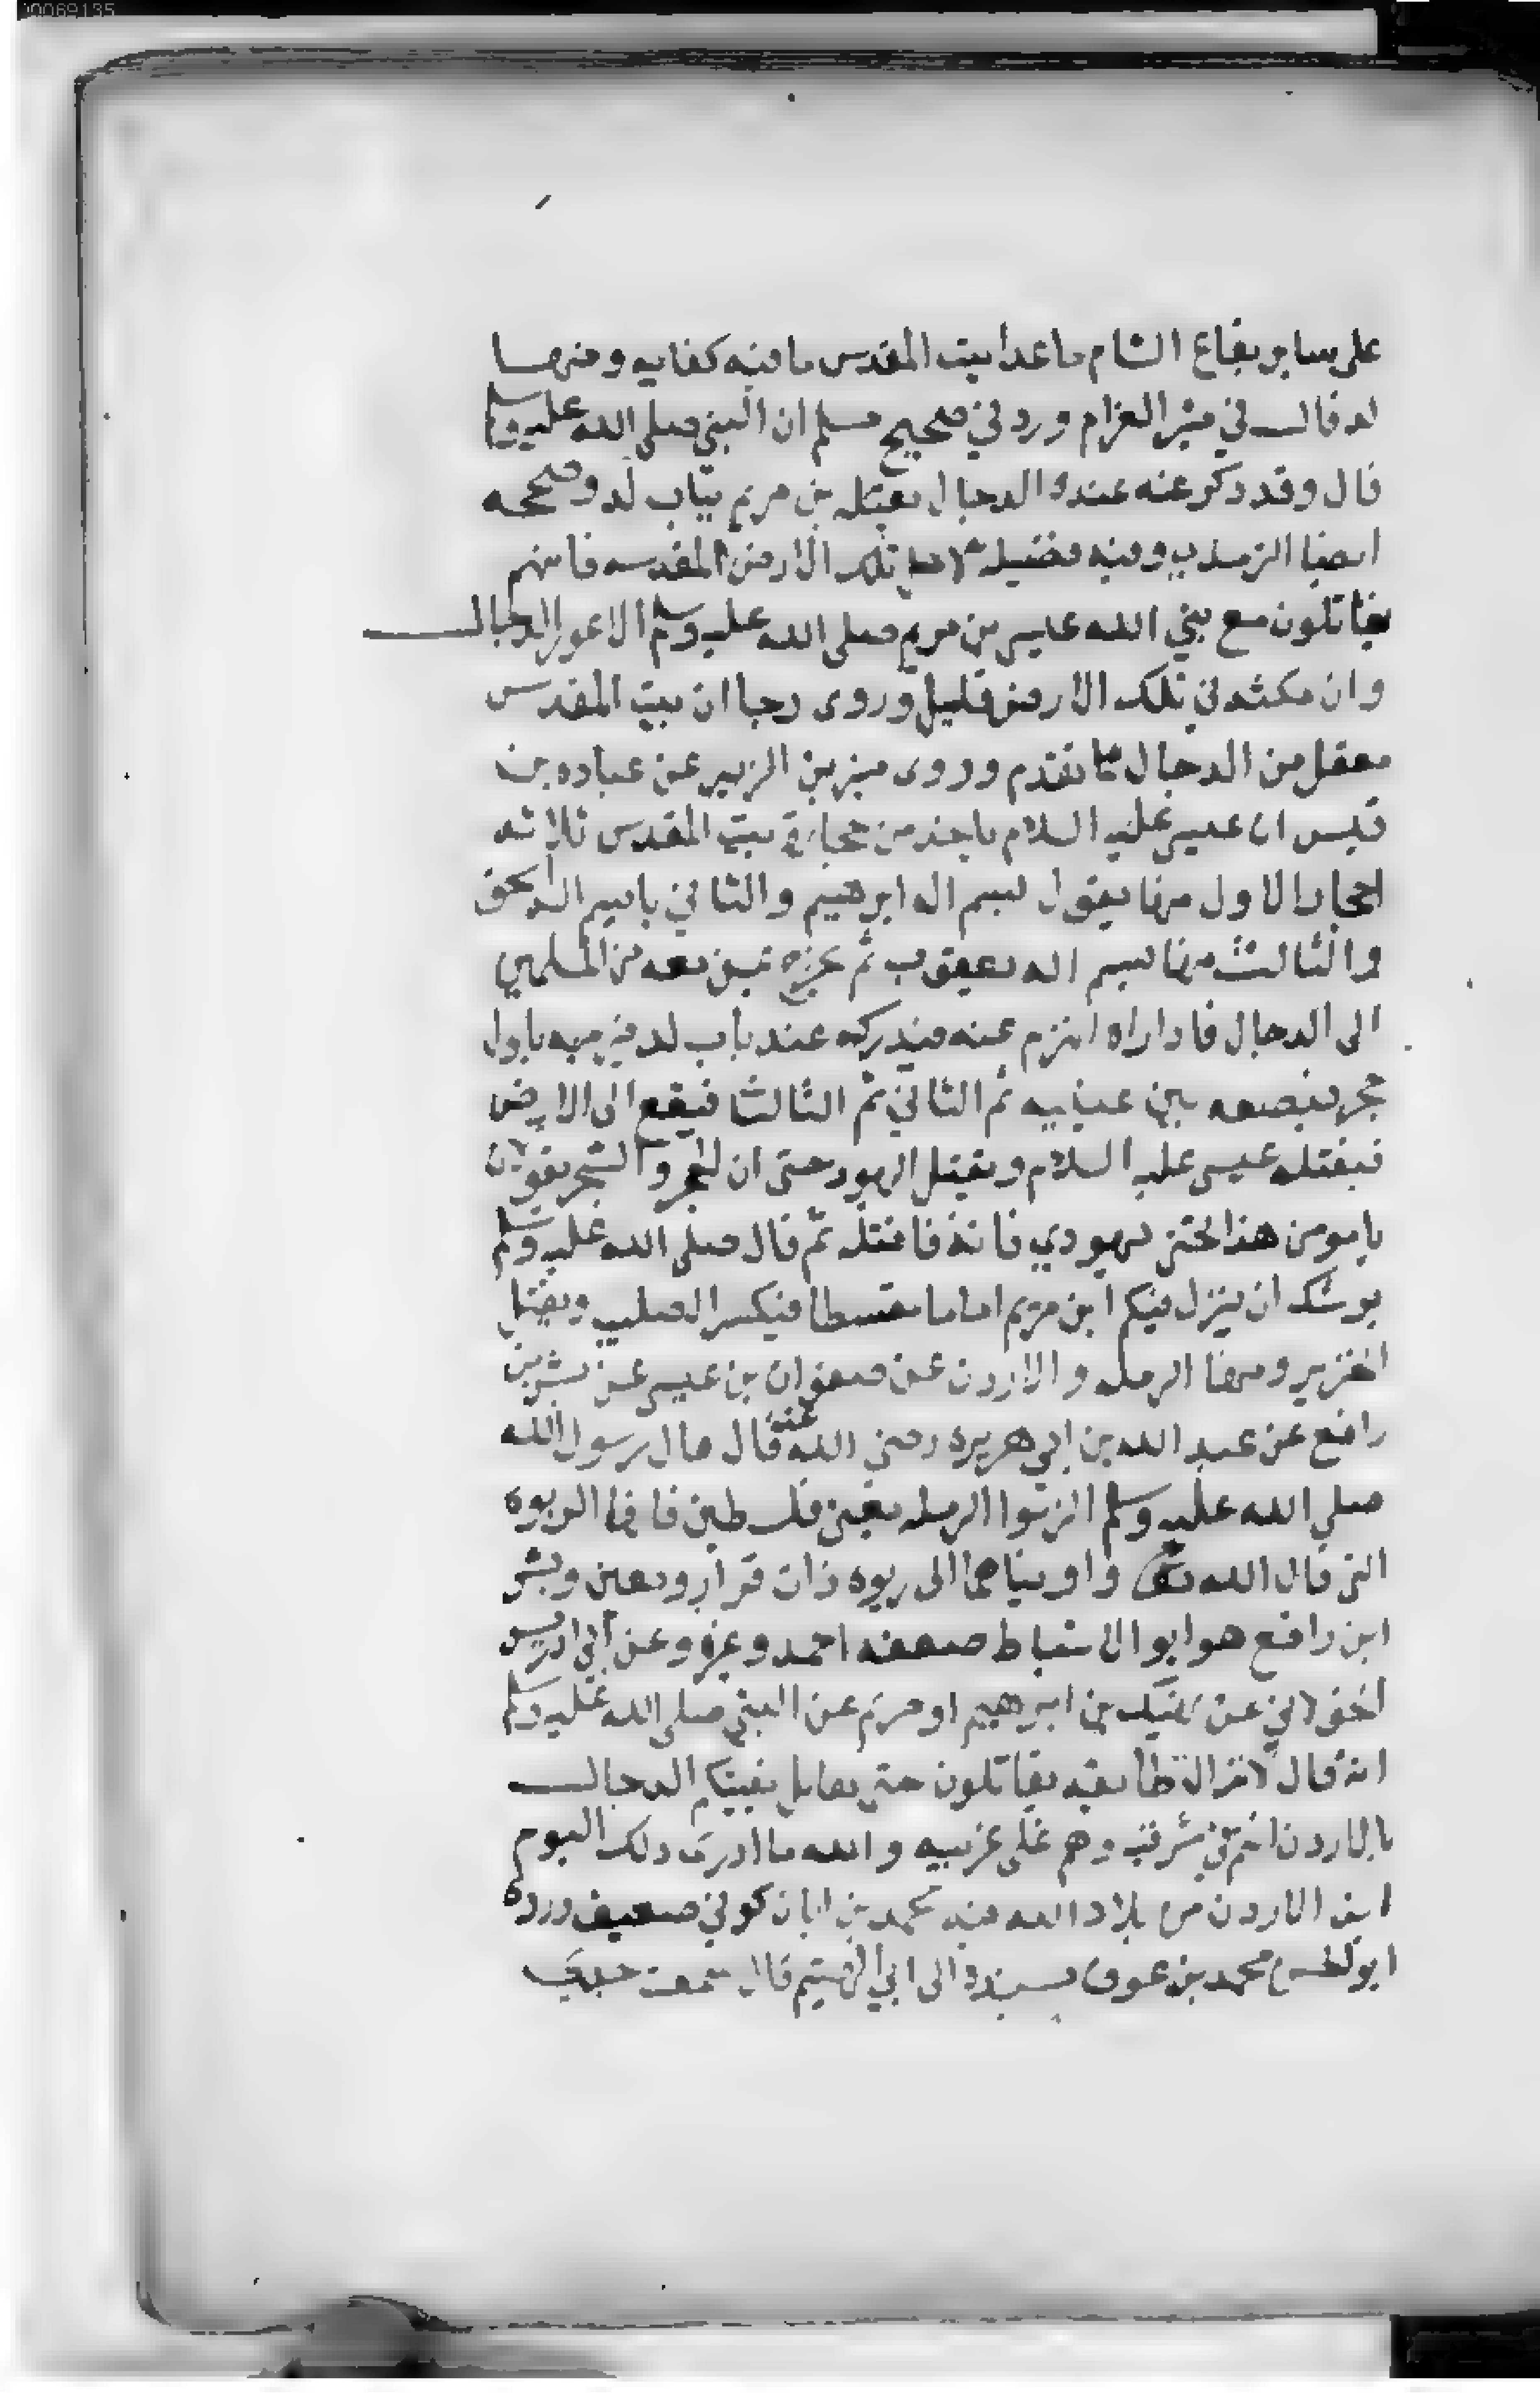 00069135
على ساير بقاع الشام ما عدا بيت المقدس ما فيه كفايه ومنها
لد قال في مثير الغرام ورد في صحيح مسلم ان النبي صلى الله عليه وسلم
قال وقد ذكر عنده الدجال يقتله بن مريم بباب لد وصححه
ايضا الترمذي وفيه فضيله لاهل تلك الارض المقدسه فانهم
يقاتلون مع نبي الله عيسى بن مريم صلى الله عليه وسلم الاعور الدجال
وان مكثه في تلك الارض قليل وروى رجا ان بيت المقدس
معقل من الدجال كما تقدم وروى بن الزبير عن عباده بن
قيس ان عيسى عليه السلام ياخذ من حجارة بيت المقدس ثلاثه
احجار الاول منها يقول بسم اله ابرهيم والثاني باسم اله اسحق
والثالث منها بسم اله يعقوب ثم يخرج بمن معه من المسلمين
الى الدجال فاذا راه انهزم عنه فيدركه عند باب لد فيرميه باول
حجر فيضعه بين عينيه ثم الثاني ثم الثالث فيقع الى الارض
فيقتله عيسى عليه السلام ويقتل اليهود حتى ان الحجر والشجر يقولان
يا مومن هذا تحتي يهودي فاته فاقتله ثم قال صلى الله عليه وسلم
يوشك ان ينزل فيكم ابن مريم اماما مقسطا فيكسر الصليب ويقتل
الخنزير ومنها الرمله والاردن عن صفوان بن عيسى عن بشر بن
رافع عن عبد الله بن ابي هريره رضي الله عنه قال قال رسول الله
صلى الله عليه وسلم الزموا الرمله يعني فلسطين فانها الربوه
التي قال الله تعالى واويناهما الى ربوه ذات قرار ومعين وبشر
ابن رافع هو ابو الاسباط ضعفه احمد وغيره وعن ابي ادريس
الخولاني عن نهيك بن ابرهيم او صريم عن النبي صلى الله عليه وسلم
انه قال لا تزال طايفه يقاتلون حتى يقاتل بقيتكم الدجال
بالاردن انتم في شرقيه وهم على غربيه والله ما ادرى ذلك اليوم
اين الاردن من بلاد الله فيه محمد بن ابان كوفي ضعيف ورده
ابو الحسن محمد بن عوف بسنده الى ابي الهيثم قال سمعت